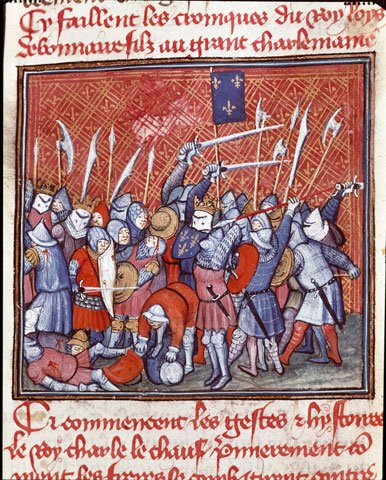 Cy faillent les croniques du roy loys
debonnaire filz au grant charlemaine
Ci commencent les gestes & hystoires
le roy charle le chauf. premierement co
ment les freres se combatirent contre